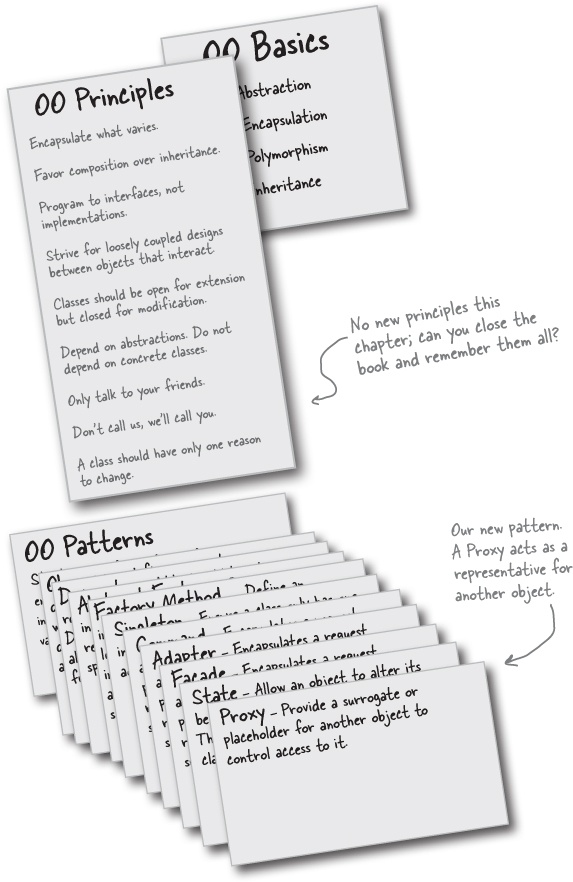 OO Basics
Abstraction
Encapsulation
Polymorphism
Inheritance
OO Principles
Encapsulate what varies.
Favor composition over inheritance.
Program to interfaces, not
implementations.
Strive for loosely coupled designs
between objects that interact.
Classes should be open for extension
but closed for modification.
Depend on abstractions. Do not
depend on concrete classes.
Only talk to your friends.
Don't call us, we'll call you.
A class should have only one reason
to change.
No new principles this
chapter; can you close the
book and remember them all?
OO Patterns
Factory Method – Define an
Singleton
Command
Adapter – Encapsulates a request
Facade – Encapsulates a request
State – Allow an object to alter its
Proxy – Provide a surrogate or
placeholder for another object to
control access to it.
Our new pattern.
A Proxy acts as a
representative for
another object.